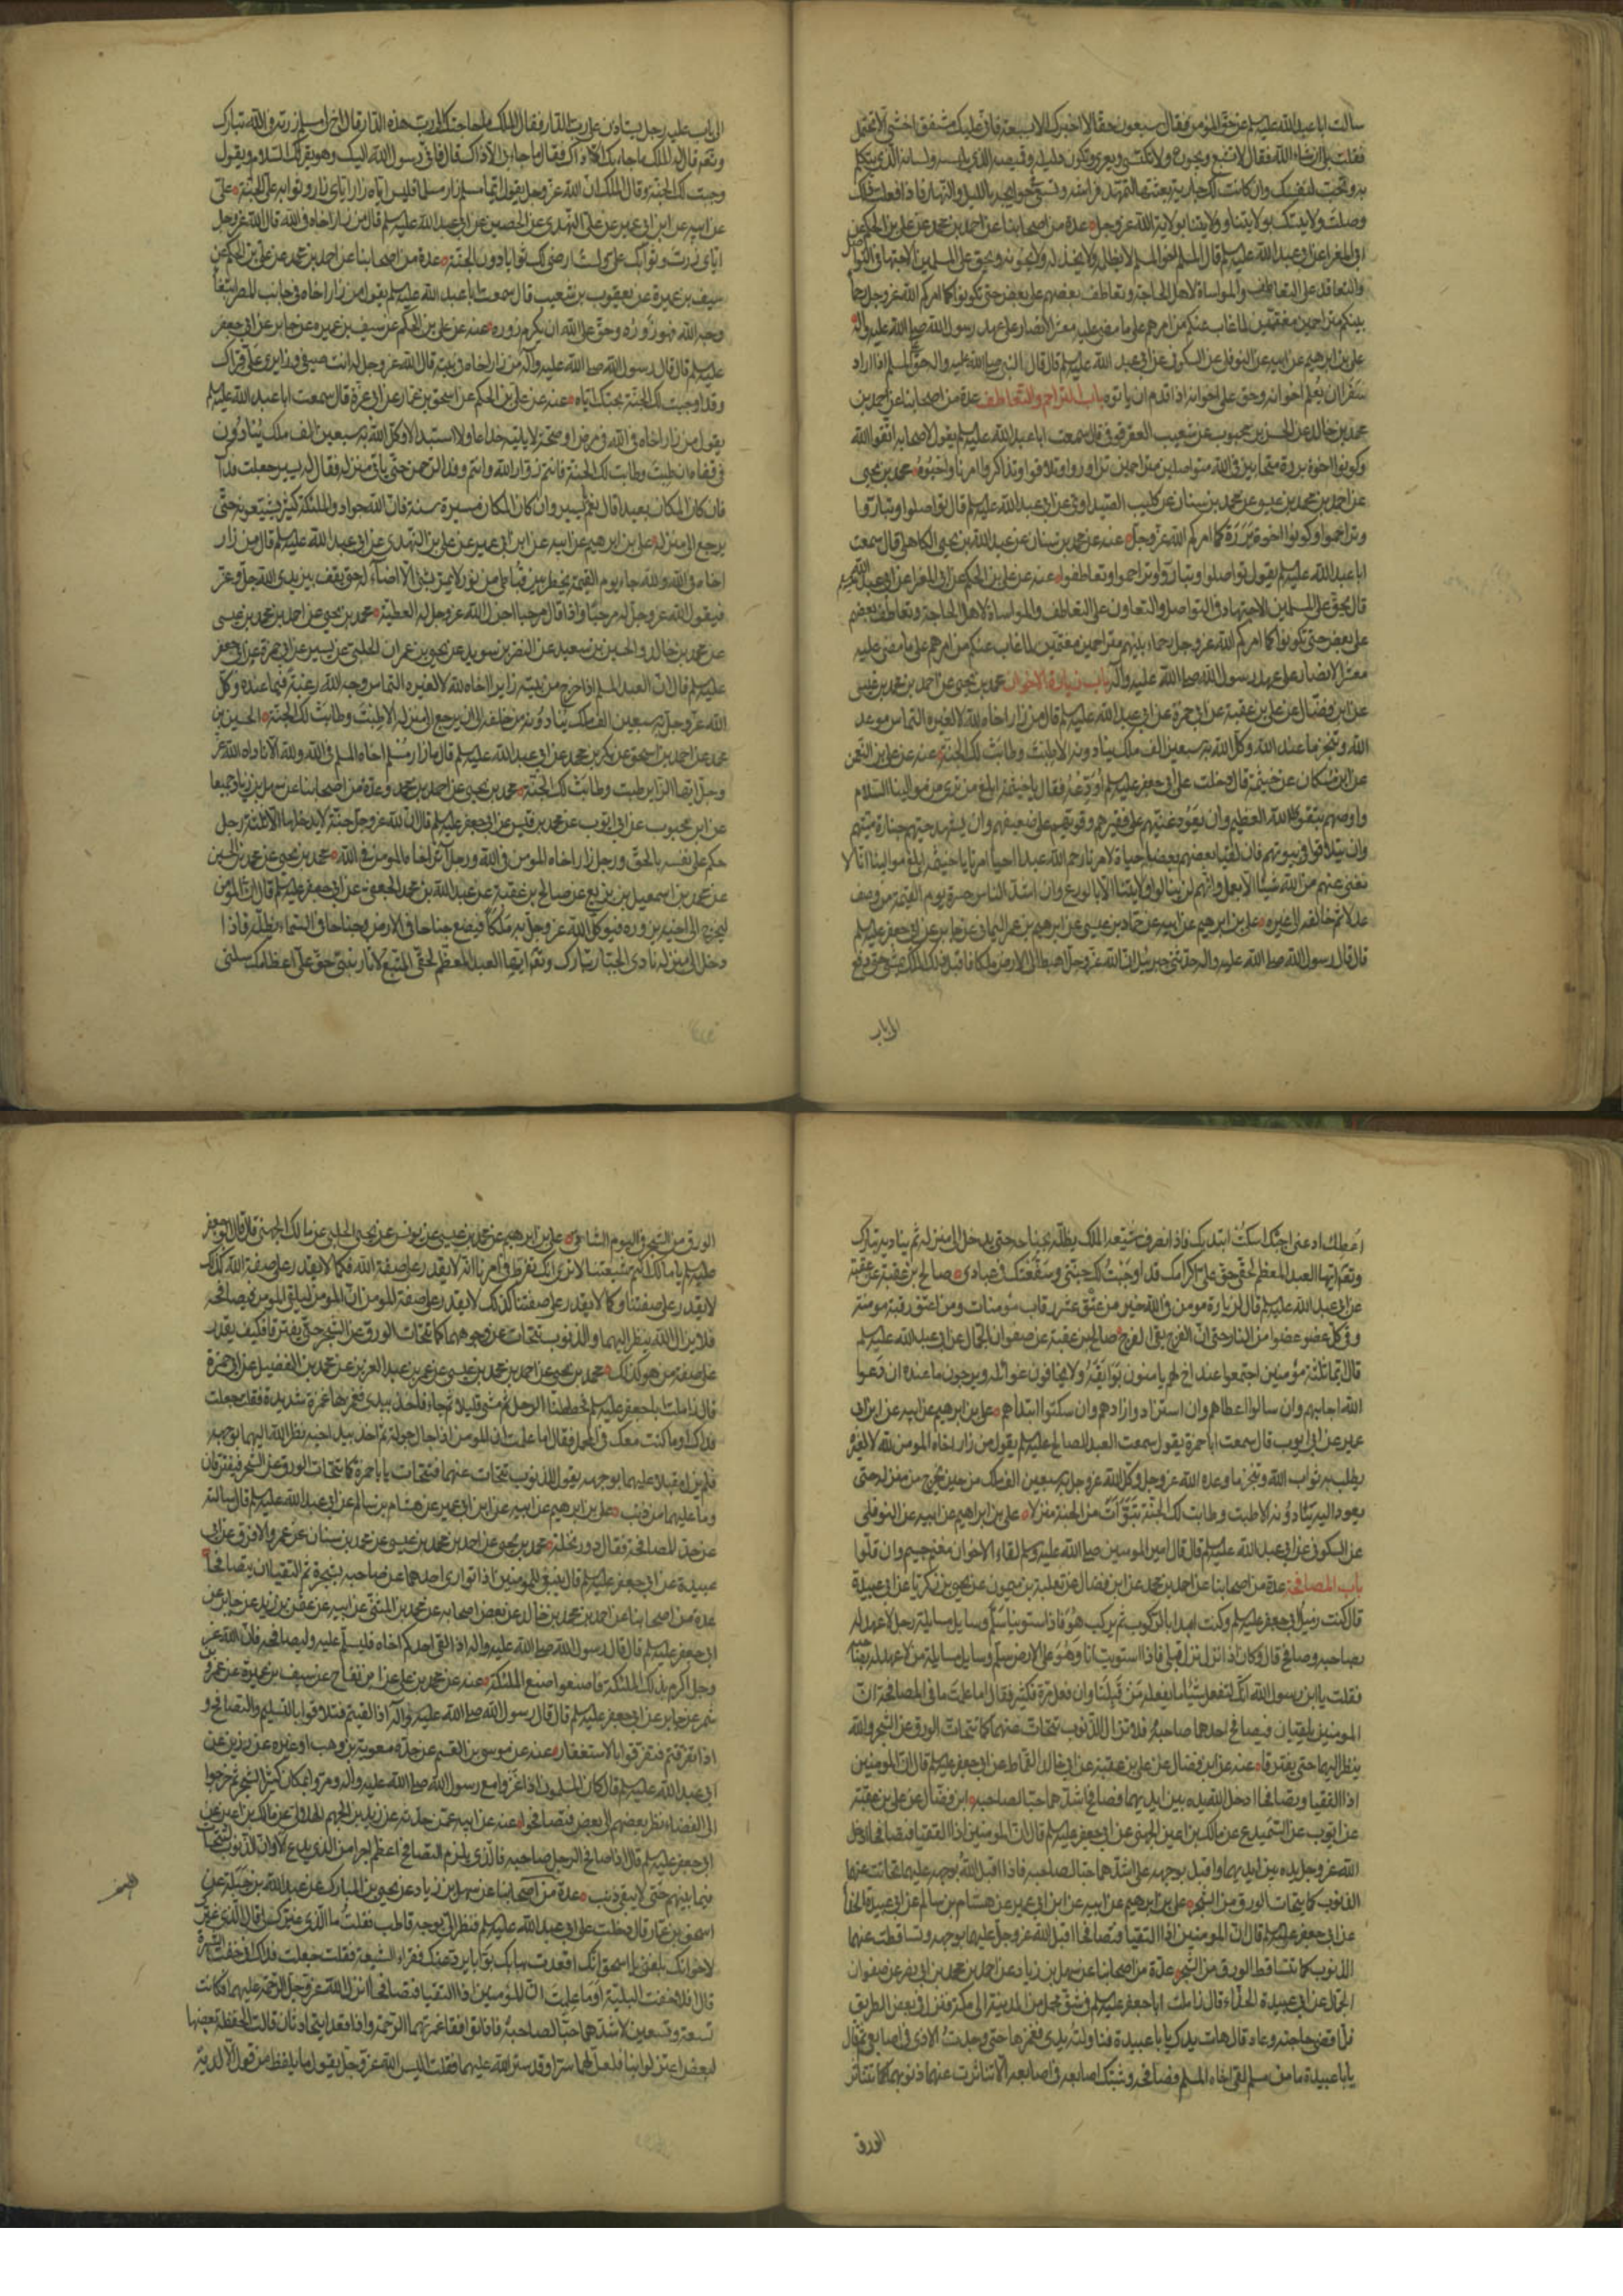 سالت ابا عبد الله عليه السلم عن حق المؤمن فقال سبعون حقا لا اخبرك الا بسبعة فانى عليك مشفق اخشى الا تحتمل
فقلت بلى ان شاء الله فقال لا تشبع ويجوع ولا تكتسى ويعرى وتكون دليله وقميصه الذى يلبسه ولسانه الذى يتكلم
به وتحب لنفسك وان كانت لك جارية بعثتها لتمهد فراشه وتسعى فى حوائجه بالليل والنهار فاذا فعلت ذلك
وصلت ولايتك بولايتنا وولايتنا بولاية الله عز وجل عدة من اصحابنا عن احمد بن محمد عن على بن الحكم عن
ابى المغرا عن ابى عبد الله عليه السلم قال المسلم اخو المسلم لا يظلمه ولا يخذله ولا يخونه ويحق على المسلمين الاجتهاد فى التواصل
والتعاقد على التعاطف والمواساة لاهل الحاجة وتعاطف بعضهم على بعض حتى تكونوا كما امركم الله عز وجل رحماء
بينكم متراحمين مغتمين لما غاب عنكم من امرهم على ما مضى عليه معشر الانصار على عهد رسول الله صلى الله عليه واله
على بن ابرهيم عن ابيه عن النوفلى عن السكونى عن ابى عبد الله عليه السلم قال قال النبى صلى الله عليه واله حق المسلم اذا اراد
سفرا ان يعلم اخوانه وحق على اخوانه اذا قدم ان ياتوه باب التراحم والتعاطف عدة من اصحابنا عن احمد بن
محمد بن خالد عن الحسن بن محبوب عن شعيب العقرقوفى قال سمعت ابا عبد الله عليه السلم يقول لاصحابه اتقوا الله
وكونوا اخوة بررة متحابين فى الله متواصلين متراحمين تزاوروا وتلاقوا وتذاكروا امرنا واحيوه محمد بن يحيى
عن احمد بن محمد بن عيسى عن محمد بن سنان عن كليب الصيداوى عن ابى عبد الله عليه السلم قال تواصلوا وتباروا
وتراحموا وكونوا اخوة بررة كما امركم الله عز وجل عنه عن محمد بن سنان عن عبد الله بن يحيى الكاهلى قال سمعت
ابا عبد الله عليه السلم يقول تواصلوا وتباروا وتراحموا وتعاطفوا عنه عن على بن الحكم عن ابى المغرا عن ابى عبد الله عليه السلم
قال يحق على المسلمين الاجتهاد فى التواصل والتعاون على التعاطف والمواساة لاهل الحاجة وتعاطف بعضهم
على بعض حتى تكونوا كما امركم الله عز وجل رحماء بينهم متراحمين مغتمين لما غاب عنكم من امرهم على ما مضى عليه
معشر الانصار على عهد رسول الله صلى الله عليه واله باب زيارة الاخوان محمد بن يحيى عن احمد بن محمد بن عيسى
عن ابن فضال عن على بن عقبة عن ابى حمزة عن ابى عبد الله عليه السلم قال من زار اخاه لله لا لغيره التماس موعد
الله وتنجز ما عند الله وكل الله به سبعين الف ملك ينادونه الا طبت وطابت لك الجنة عنه عن على بن النعمن
عن ابن مسكان عن خيثمة قال دخلت على ابى جعفر عليه السلم اودعه فقال يا خيثمة ابلغ من ترى من موالينا السلام
واوصهم بتقوى الله العظيم وان يعود غنيهم على فقيرهم وقويهم على ضعيفهم وان يشهد حيهم جنازة ميتهم
وان يتلاقوا فى بيوتهم فان لقيا بعضهم بعضا حياة لامرنا رحم الله عبدا احيا امرنا يا خيثمة ابلغ موالينا انا لا
نغنى عنهم من الله شيئا الا بعمل وانهم لن ينالوا ولايتنا الا بالورع وان اشد الناس حسرة يوم القيمة من وصف
عدلا ثم خالفه الى غيره على بن ابرهيم عن ابيه عن حماد بن عيسى عن ابرهيم بن عمر اليمانى عن جابر عن ابى جعفر عليه السلم
قال قال رسول الله صلى الله عليه واله حدثنى جبرئيل ان الله عز وجل اهبط الى الارض ملكا فاقبل ذلك الملك يمشى حتى وقع
الى باب
الى باب عليه رجل يستاذن على رب الدار فقال له الملك ما حاجتك الى رب هذه الدار قال اخ لى مسلم زرته فى الله تبارك
وتعم قال له الملك ما جاء بك الا ذاك فقال ما جاء بى الا ذاك قال فانى رسول الله اليك وهو يقرئك السلام ويقول
وجبت لك الجنة وقال الملك ان الله عز وجل يقول ايما مسلم زار مسلما فليس اياه زار اياى زار وثوابه على الجنة على
عن ابيه عن ابن ابى عمير عن على النهدى عن الحصين عن ابى عبد الله عليه السلم قال من زار اخاه فى الله قال الله عز وجل
اياى زرت وثوابك على ولست ارضى لك ثوابا دون الجنة عدة من اصحابنا عن احمد بن محمد عن على بن الحكم عن
سيف بن عميرة عن يعقوب بن شعيب قال سمعت ابا عبد الله عليه السلم يقول من زار اخاه فى جانب المصر ابتغاء
وجه الله فهو زوره وحق على الله ان يكرم زوره عنه عن على بن الحكم عن سيف بن عميره عن جابر عن ابى جعفر
عليه السلم قال قال رسول الله صلى الله عليه واله من زار اخاه فى بيته قال الله عز وجل له انت ضيفى وزايرى على قراك
وقد اوجبت لك الجنة بحبك اياه عنه عن على بن الحكم عن اسحق بن عمار عن ابى عزة قال سمعت ابا عبد الله عليه السلم
يقول من زار اخاه فى الله فى مرض او صحة لا ياتيه خداعا ولا استبدالا وكل الله به سبعين الف ملك ينادون
فى قفاه ان طبت وطابت لك الجنة فانتم زوار الله وانتم وفد الرحمن حتى ياتى منزله فقال له يسير جعلت فداك
فان كان المكان بعيدا قال نعم يا يسير وان كان المكان مسيرة سنة فان الله جواد والملئكة كثير يشيعونه حتى
يرجع الى منزله على بن ابرهيم عن ابيه عن ابن ابى عمير عن على بن النهدى عن ابى عبد الله عليه السلم قال من زار
اخاه فى الله ولله جاء يوم القيمة يخطر بين قباطى من نور لا يمر بشئ الا اضاء له حتى يقف بين يدى الله جل وعز
فيقول الله عز وجل له مرحبا واذا قال مرحبا اجزل الله عز وجل له العطية محمد بن يحيى عن احمد بن محمد بن عيسى
عن محمد بن خالد والحسين بن سعيد عن النضر بن سويد عن يحيى بن عمران الحلبى عن بشير عن ابى حمزة عن ابى جعفر
عليه السلم قال ان العبد المسلم اذا خرج من بيته زايرا اخاه لله لا لغيره التماس وجه الله رغبة فيما عنده وكل
الله عز وجل به سبعين الف ملك ينادونه من خلفه الى ان يرجع الى منزله الا طبت وطابت لك الجنة الحسين بن
محمد عن احمد بن اسحق عن بكر بن محمد عن ابى عبد الله عليه السلم قال ما زار مسلم اخاه المسلم فى الله ولله الا ناداه الله عز
وجل ايها الزاير طبت وطابت لك الجنة محمد بن يحيى عن احمد بن محمد وعدة من اصحابنا عن سهل بن زياد جميعا
عن ابن محبوب عن ابى ايوب عن محمد بن قيس عن ابى جعفر عليه السلم قال ان لله عز وجل جنة لا يدخلها الا ثلثة رجل
حكم على نفسه بالحق ورجل زار اخاه المومن فى الله ورجل آثر اخاه المومن فى الله محمد بن يحيى عن محمد بن الحسين
عن محمد بن اسمعيل بن بزيع عن صالح بن عقبة عن عبد الله بن محمد الجعفى عن ابى جعفر عليه السلم قال ان المؤمن
ليخرج الى اخيه يزوره فيوكل الله عز وجل به ملكا فيضع جناحا فى الارض وجناحا فى السماء يظله فاذا
دخل الى منزله نادى الجبار تبارك وتعم ايها العبد المعظم لحقى المتبع لاثار نبيى حق على اعظامك سلنى
اعطك ادعنى اجبك اسكت ابتدئك فاذا انصرف شيعه الملك يظله بجناحه حتى يدخل الى منزله ثم يناديه تبارك
وتعم ايها العبد المعظم لحقى حق على اكرامك قد اوجبت لك جنتى وشفعتك فى عبادى صالح بن عقبة عن عقبة
عن ابى عبد الله عليه السلم قال لزيارة مومن فى الله خير من عتق عشر رقاب مؤمنات ومن اعتق رقبة مومنة
وقى كل عضو عضوا من النار حتى ان الفرج يقى الفرج صالح بن عقبة عن صفوان الجمال عن ابى عبد الله عليه السلم
قال ايما ثلثة مؤمنين اجتمعوا عند اخ لهم يامنون بوائقه ولا يخافون غوائله ويرجون ما عنده ان دعوا
الله اجابهم وان سالوا اعطاهم وان استزادوا زادهم وان سكتوا ابتداهم على بن ابرهيم عن ابيه عن ابن ابى
عمير عن ابى ايوب قال سمعت ابا حمزة يقول سمعت العبد الصالح عليه السلم يقول من زار اخاه المومن لله لا لغيره
يطلب به ثواب الله وتنجز ما وعده الله عز وجل وكل الله عز وجل به سبعين الف ملك من حين يخرج من منزله حتى
يعود اليه ينادونه الا طبت وطابت لك الجنة تبوات من الجنة منزلا على بن ابراهيم عن ابيه عن النوفلى
عن السكونى عن ابى عبد الله عليه السلم قال قال امير المومنين صلى الله عليه وسلم لقاء الاخوان مغنم جسيم وان قلوا
باب المصافحة عدة من اصحابنا عن احمد بن محمد عن ابن فضال عن ثعلبة بن ميمون عن يحيى بن زكريا عن ابى عبيدة
قال كنت زميل ابى جعفر عليه السلم وكنت ابدا بالركوب ثم يركب هو فاذا استوينا سلم وسايل مسايلة رجل لا عهد له
بصاحبه وصافح قال وكان اذا نزل نزل قبلى فاذا استويت انا وهو على الارض سلم وسايل مسايلة من لا عهد له بصاحبه
فقلت يا ابن رسول الله انك لتفعل شيئا ما يفعله من قبلنا وان فعل مرة فكثير فقال اما علمت ما فى المصافحة ان
المومنين يلتقيان فيصافح احدهما صاحبه فلا تزال الذنوب تتحات عنهما كما تتحات الورق عن الشجر والله
ينظر اليهما حتى يفترقا عنه عن ابن فضال عن على بن عقبة عن ابى خالد القماط عن ابى جعفر عليه السلم قال ان المومنين
اذا التقيا وتصافحا ادخل الله يده بين ايديهما فصافح اشدهما حبا لصاحبه ابن فضال عن على بن عقبة
عن ايوب عن السميدع عن مالك بن اعين الجهنى عن ابى جعفر عليه السلم قال ان المومنين اذا التقيا فتصافحا ادخل
الله عز وجل يده بين ايديهما واقبل بوجهه على اشدهما حبا لصاحبه فاذا اقبل الله بوجهه عليهما تحاتت عنهما
الذنوب كما يتحات الورق من الشجر على بن ابرهيم عن ابيه عن ابن ابى عمير عن هشام بن سالم عن ابى عبيدة الحذا
عن ابى جعفر عليه السلم قال ان المومنين اذا التقيا فتصافحا اقبل الله عز وجل عليهما بوجهه وتساقطت عنهما
الذنوب كما يتساقط الورق من الشجر عدة من اصحابنا عن سهل بن زياد عن احمد بن محمد بن ابى نصر عن صفوان
الجمال عن ابى عبيدة الحذاء قال زاملت ابا جعفر عليه السلم فى شق محمل من المدينة الى مكة فنزل فى بعض الطريق
فلما قضى حاجته وعاد قال هات يدك يا با عبيدة فناولته يدى فغمزها حتى وجدت الاذى فى اصابعى ثم قال
يا با عبيدة ما من مسلم لقى اخاه المسلم فصافحه وشبك اصابعه فى اصابعه الا تناثرت عنهما ذنوبهما كما يتناثر
الورق
الورق من الشجر فى اليوم الشاتى على بن ابرهيم عن محمد بن عيسى عن يونس عن يحيى الحلبى عن مالك الجهنى قال قال ابو جعفر
عليه السلم يا مالك انتم شيعتنا لا ترى انك تفرط فى امرنا انه لا يقدر على صفة الله فكما لا يقدر على صفة الله كذلك
لا يقدر على صفتنا وكما لا يقدر على صفتنا كذلك لا يقدر على صفة المومن ان المومن ليلقى المومن فيصافحه
فلا يزال الله ينظر اليهما والذنوب تتحات عن وجوههما كما تتحات الورق عن الشجر حتى يفترقا فكيف يقدر
على صفة من هو كذلك محمد بن يحيى عن احمد بن محمد بن عيسى عن عمر بن عبد العزيز عن محمد بن الفضيل عن ابى حمزة
قال زاملت ابا جعفر عليه السلم فحططنا الرحل ثم مشى قليلا ثم جاء فاخذ بيدى فغمزها غمزة شديدة فقلت جعلت
فداك اوما كنت معك فى المحمل فقال اما علمت ان المومن اذا جال جولة ثم اخذ بيد اخيه نظر الله اليهما بوجهه
فلم يزل مقبلا عليهما بوجهه يقول للذنوب تتحات عنهما فتتحات يا با حمزة كما تتحات الورق عن الشجر فيفترقان
وما عليهما من ذنب على بن ابرهيم عن ابيه عن ابن ابى عمير عن هشام بن سالم عن ابى عبد الله عليه السلم قال سالته
عن حد المصافحة فقال دور نخلة محمد بن يحيى عن احمد بن محمد بن عيسى عن محمد بن سنان عن عمرو الافرق عن ابى
عبيدة عن ابى جعفر عليه السلم قال ينبغى للمومنين اذا توارى احدهما عن صاحبه بشجرة ثم التقيا ان يتصافحا
عدة من اصحابنا عن احمد بن محمد بن خالد عن بعض اصحابه عن محمد بن المثنى عن ابيه عن عثمن بن زيد عن جابر عن
ابى جعفر عليه السلم قال قال رسول الله صلى الله عليه واله اذا لقى احدكم اخاه فليسلم عليه وليصافحه فان الله عز
وجل اكرم بذلك الملئكة فاصنعوا صنع الملئكة عنه عن محمد بن على عن ابن بقاح عن سيف بن عميرة عن عمرو بن
شمر عن جابر عن ابى جعفر عليه السلم قال قال رسول الله صلى الله عليه واله اذا التقيتم فتلاقوا بالتسليم والتصافح و
اذا تفرقتم فتفرقوا بالاستغفار عنه عن موسى بن القسم عن جده معوية بن وهب او غيره عن رزين عن
ابى عبد الله عليه السلم قال كان المسلمون اذا غزوا مع رسول الله صلى الله عليه واله ومروا بمكان كثير الشجر ثم خرجوا
الى الفضاء نظر بعضهم الى بعض فتصافحوا عنه عن ابيه عمن حدثه عن زيد بن الجهم الهلالى عن مالك بن اعين عن
ابى جعفر عليه السلم قال اذا صافح الرجل صاحبه فالذى يلزم التصافح اعظم اجرا من الذى يدع الا وان الذنوب لتتحات
فيما بينهم حتى لا يبقى ذنب عدة من اصحابنا عن سهل بن زياد عن يحيى بن المبارك عن عبد الله بن جبلة عن
اسحق بن عمار قال دخلت على ابى عبد الله عليه السلم فنظر الى بوجه قاطب فقلت ما الذى غيرك لى قال الذى غيرك
لاخوانك بلغنى يا اسحق انك اقعدت ببابك بوابا يرد عنك فقراء الشيعة فقلت جعلت فداك انى خفت الشهرة
قال افلا خفت البلية اوما علمت ان المؤمنين اذا التقيا فتصافحا انزل الله عز وجل الرحمة عليهما فكانت
تسعة وتسعين لاشدهما حبا لصاحبه فاذا توافقا غمرتهما الرحمة واذا قعدا يتحادثان قالت الحفظة بعضها
لبعض اعتزلوا بنا فلعل لهما سرا وقد ستر الله عليهما فقلت اليس الله عز وجل يقول ما يلفظ من قول الا لديه